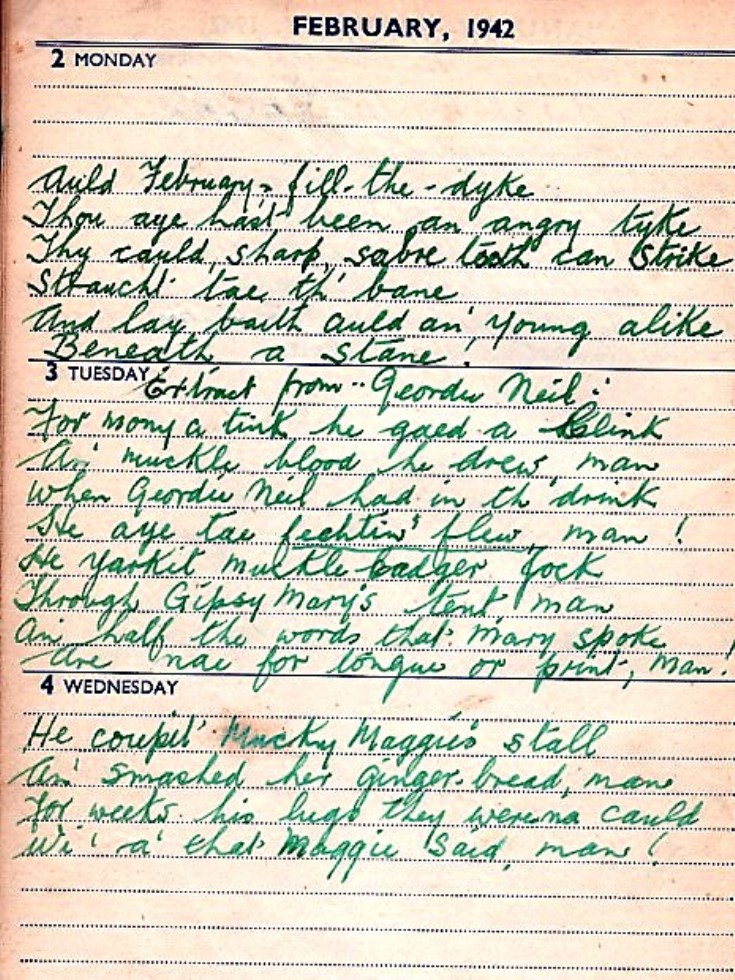 FEBRUARY, 1942
2 MONDAY
Auld February-fill-the-dyke
Thou aye hast been an angry tyke
Thy cauld, sharp, sabre tooth can strike
Straucht tae th' bane
And lay baith auld an' young alike
Beneath a stane!
3 TUESDAY
Extract from "Geordie Neil:
For mony a tink he gaed a blink
An' muckle blood he drew, man
When Geordie Neil had in th' drink
He aye tae fechtin' flew, man!
He yarkit muckle badger Jock
Through Gipsy Mary's tent man
An' half the words that Mary spoke
Are nae for tongue or print, man!
4 WEDNESDAY
He coupit Mucky Maggie's stall
An' smashed her ginger-bread, man
For weeks his lugs they werena cauld
Wi' a' that Maggie said, man!